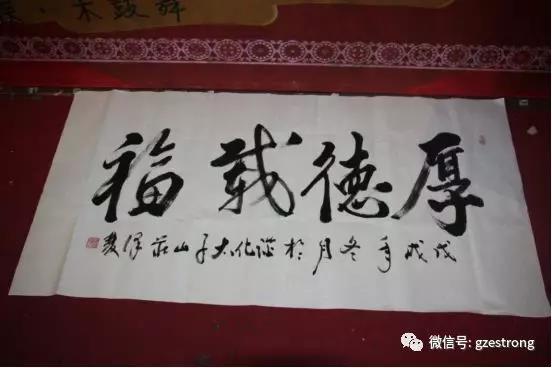 木鼓舞
厚德載福
戊戌年冬月於從化太子山莊
微信号: gzestrong